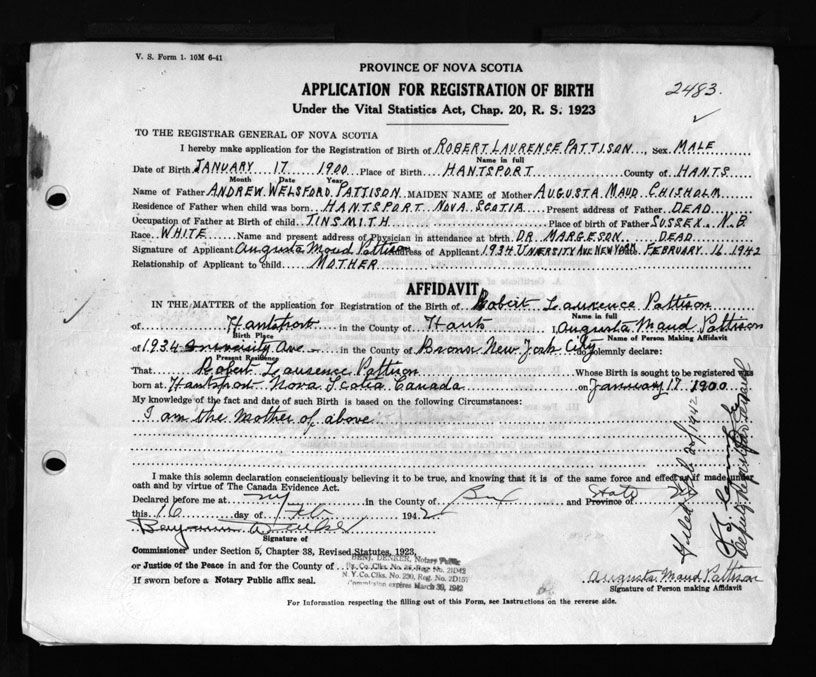 V. S. Form 1. 10M 6-41
PROVINCE OF NOVA SCOTIA
APPLICATION FOR REGISTRATION OF BIRTH
2483
Under the Vital Statistics Act, Chap. 20, R. S. 1923
TO THE REGISTRAR GENERAL OF NOVA SCOTIA
I hereby make application for the Registration of Birth of ROBERT LAURENCE PATTISON, Sex MALE
Name in full
Date of Birth JANUARY 17 1900 Place of Birth HANTSPORT County of HANTS
Month Date Year
Name of Father ANDREW WELSFORD PATTISON MAIDEN NAME of Mother AUGUSTA MAUD CHISHOLM
Residence of Father when child was born HANTSPORT NOVA SCOTIA Present address of Father DEAD
Occupation of Father at Birth of child TINSMITH Place of birth of Father SUSSEX N.B
Race WHITE Name and present address of Physician in attendance at birth DR MARGESON DEAD
Signature of Applicant Augusta Maud Pattison Address of Applicant 1934 UNVERSITY AVE NEW YORK FEBRUARY 16 1942
Relationship of Applicant to child MOTHER
AFFIDAVIT
IN THE MATTER of the application for Registration of the Birth of Robert Laurence Pattison
Name in full
of Hantsport in the County of Hants I, Augusta Maud Pattison
Birth Place Name of Person Making Affidavit
of 1934 University Ave in the County of Bronx New York City do solemnly declare:
Present Residence
That Robert Laurence Pattison Whose Birth is sought to be registered was
born at Hantsport Nova Scotia Canada on January 17 1900
My knowledge of the fact and date of such Birth is based on the following Circumstances:
I am the mother of above
I make this solemn declaration conscientiously believing it to be true, and knowing that it is of the same force and effect as if made under
oath and by virtue of The Canada Evidence Act.
Declared before me at NY in the County of Bx and Province of State NY
this 16 day of Feb 1942
Signature of
Commissioner under Section 5, Chapter 38, Revised Statutes, 1923,
or Justice of the Peace in and for the County of
BENJ. DENKER, Notary Public
Bx. Co. Clks. No. Reg. No.
N. Y. Co. Clks. No. 230, Reg. No. 2D157
Commission expires March 30, 1942
If sworn before a Notary Public affix seal.
Augusta Maud Pattison
Signature of Person making Affidavit
For Information respecting the filling out of this Form, see Instructions on the reverse side.
Filed Feb 20/1942
Deputy Registrar General